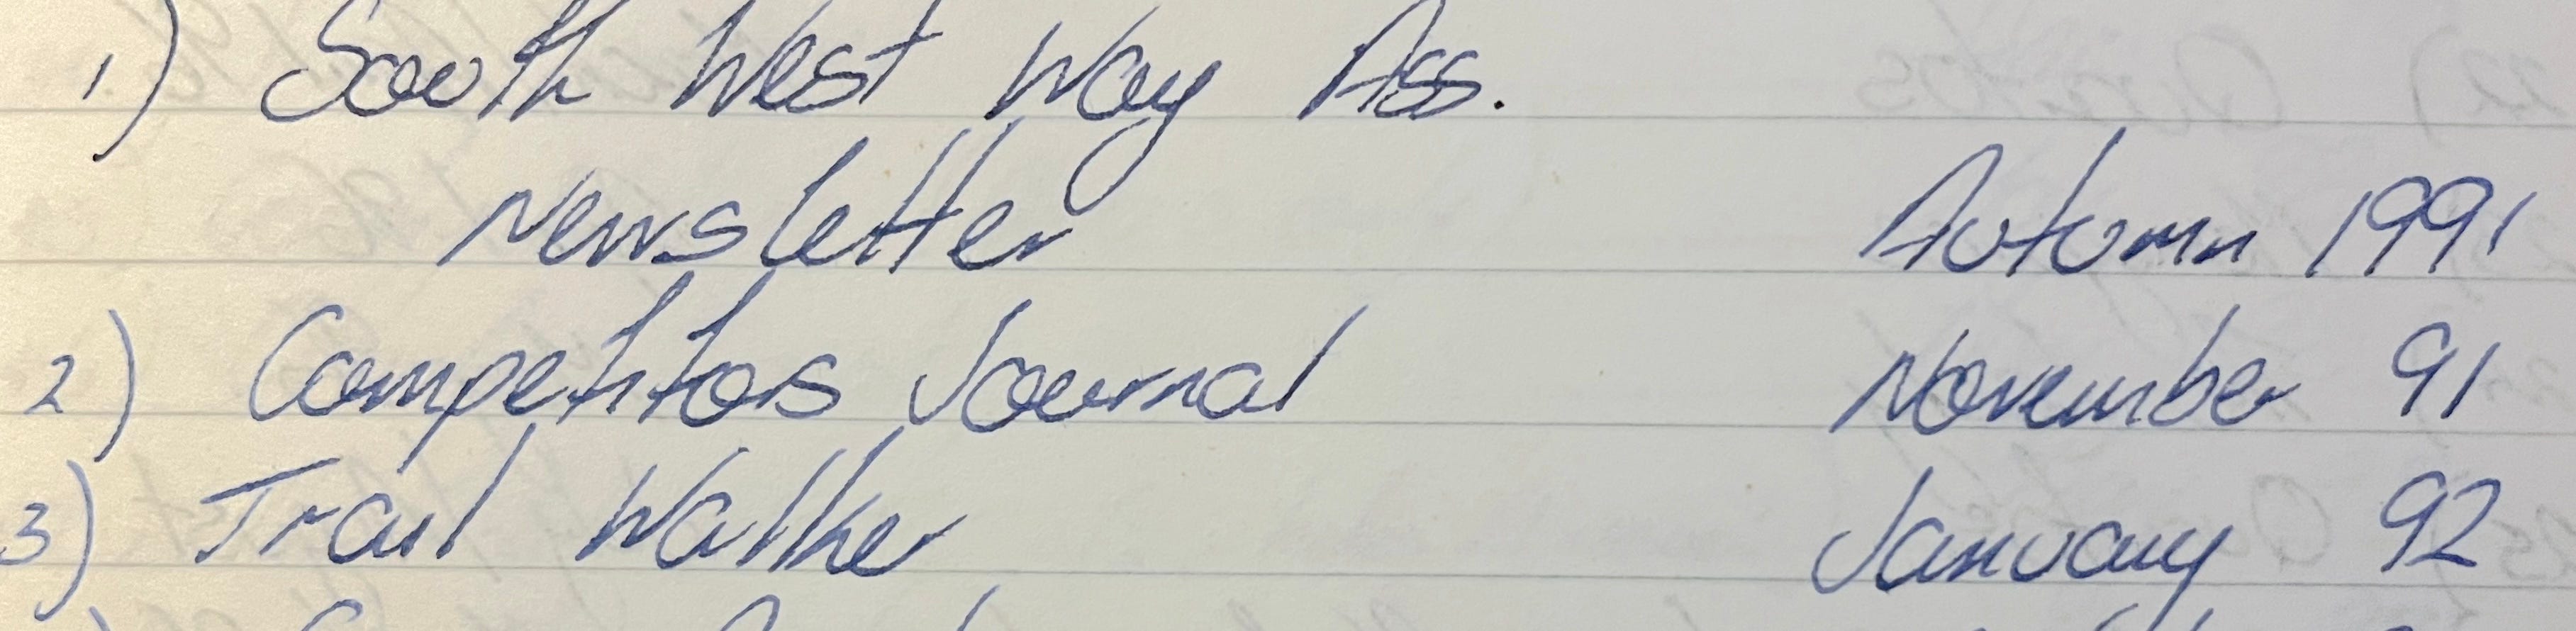 1) South West Way Ass.
Newsletter Autumn 1991
2) Competitors Journal November 91
3) Trail Walker January 92